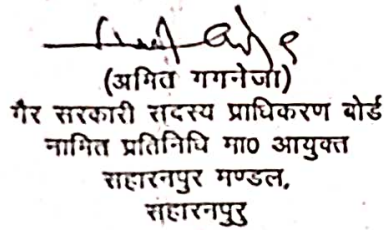 (अमित गगनेजा)
गैर सरकारी सदस्य प्राधिकरण बोर्ड
नामित प्रतिनिधि मा० आयुक्त
सहारनपुर मण्डल,
सहारनपुर